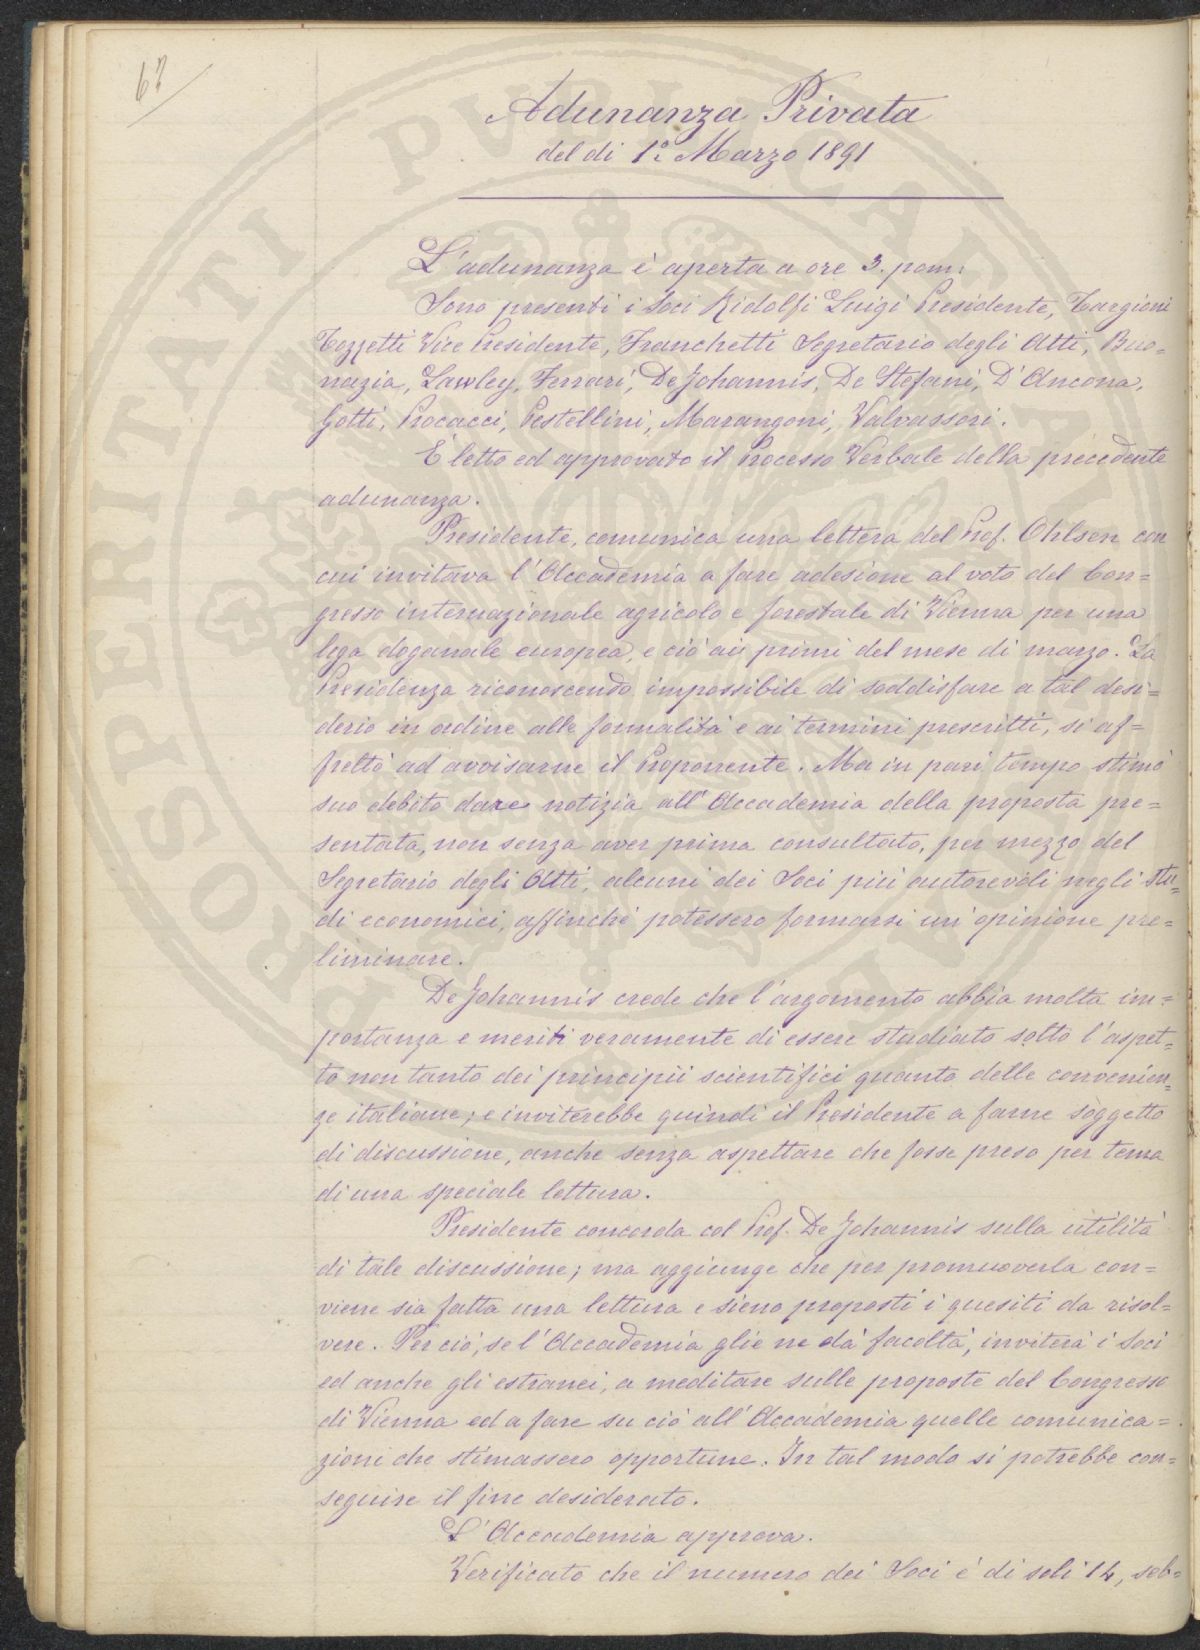 62
Adunanza Privata
del dì 1.° Marzo 1891
L'adunanza è aperta a ore 3. pom:
Sono presenti i Soci Ridolfi Luigi Presidente, Targioni
Tozzetti Vice Presidente, Franchetti Segretario degli Atti, Buo=
nazia, Lawley, Ferrari, De Johannis, De Stefani, D'Ancona,
Gotti, Procacci, Pestellini, Marangoni, Valvassori.
È letto ed approvato il Processo Verbale della precedente
adunanza.
Presidente, comunica una lettera del Prof. Ohlsen con
cui invitava l'Accademia a fare adesione al voto del Con=
gresso internazionale agricolo e forestale di Vienna per una
lega doganale europea, e ciò ai primi del mese di marzo. La
Presidenza riconoscendo impossibile di soddisfare a tal desi=
derio in ordine alle formalità e ai termini prescritti, si af=
frettò ad avvisarne il Proponente. Ma in pari tempo stimò
suo debito dare notizia all'Accademia della proposta pre=
sentata, non senza aver prima consultato, per mezzo del
Segretario degli Atti, alcuni dei Soci più autorevoli negli stu=
di economici, affinché potessero formarsi un'opinione pre=
liminare.
De Johannis crede che l'argomento abbia molta im=
portanza e meriti veramente di essere studiato sotto l'aspet=
to non tanto dei principii scientifici quanto delle convenien=
ze italiane; e inviterebbe quindi il Presidente a farne soggetto
di discussione, anche senza aspettare che fosse preso per tema
di una speciale lettura.
Presidente concorda col Prof. De Johannis sulla utilità
di tale discussione; ma aggiunge che per promuoverla con=
viene sia fatta una lettura e sieno proposti i quesiti da risol=
vere. Per ciò, se l'Accademia glie ne dà facoltà, inviterà i Soci
ed anche gli estranei, a meditare sulle proposte del Congresso
di Vienna ed a fare su ciò all'Accademia quelle comunica=
zioni che stimassero opportune. In tal modo si potrebbe con=
seguire il fine desiderato.
L'Accademia approva.
Verificato che il numero dei Soci è di soli 14, seb=
PROSPERITATI PVBLICAE AVGENDAE